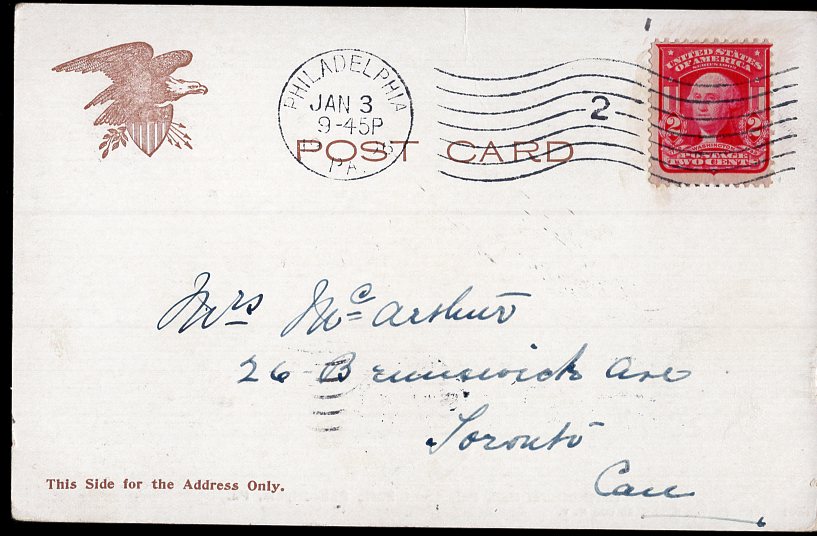 PHILADELPHIA
JAN 3
9-45P
PA.
2
UNITED STATES
OF AMERICA
SERIES 1902
2 2
WASHINGTON
POSTAGE
TWO CENTS
POST CARD
Mrs McArthur
26 Brunswick Ave
Toronto
Can
This Side for the Address Only.